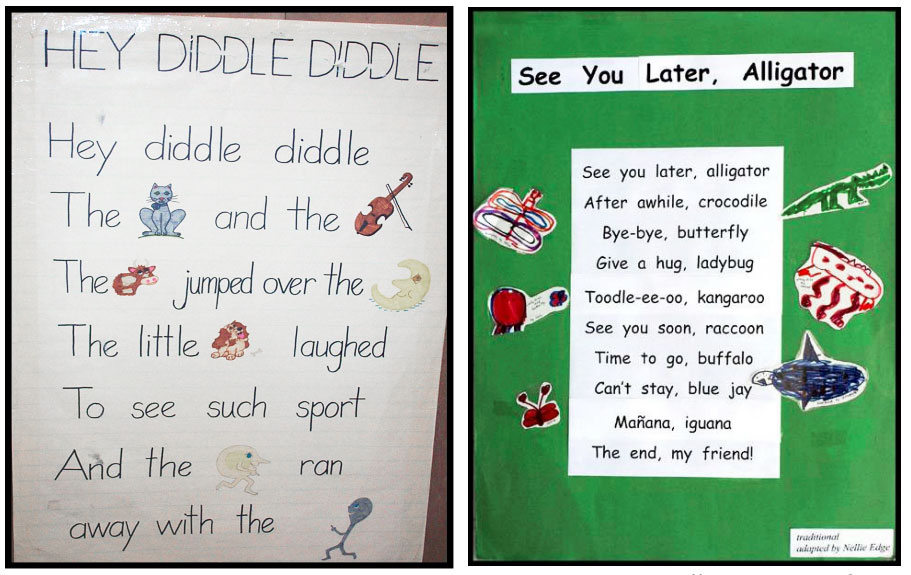 HEY DIDDLE DIDDLE
Hey diddle diddle
The and the
The jumped over the
The little laughed
To see such sport
And the ran
away with the
See You Later, Alligator
See you later, alligator
After awhile, crocodile
Bye-bye, butterfly
Give a hug, ladybug
Toodle-ee-oo, kangaroo
See you soon, raccoon
Time to go, buffalo
Can't stay, blue jay
Mañana, iguana
The end, my friend!
traditional
adapted by Nellie Edge